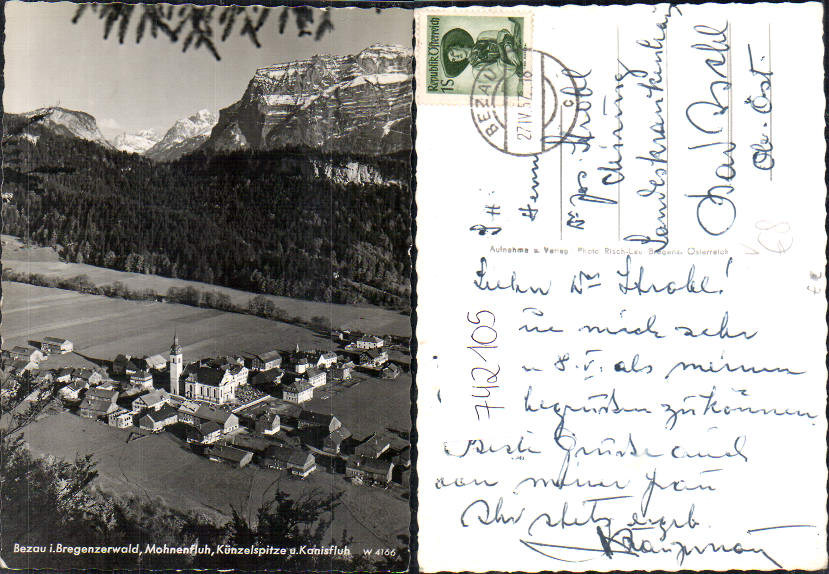 Bezau i.Bregenzerwald, Mohnenfluh, Künzelspitze u.Kanisfluh W 4166
Republik Österreich
1S
BEZAU
27 IV 57
c
Herrn
Dr Jos. Strobl
Landeskrankenhaus
Bad Ischl
Ob. Öst.
Aufnahme u. Verlag Photo Risch-Lau Bregenz, Österreich
68
742105
Dr Strobl!
mich sehr
als meinen
begrüßen zu können
beste Grüße auch
von meiner Frau
Ihr stets ergeb.